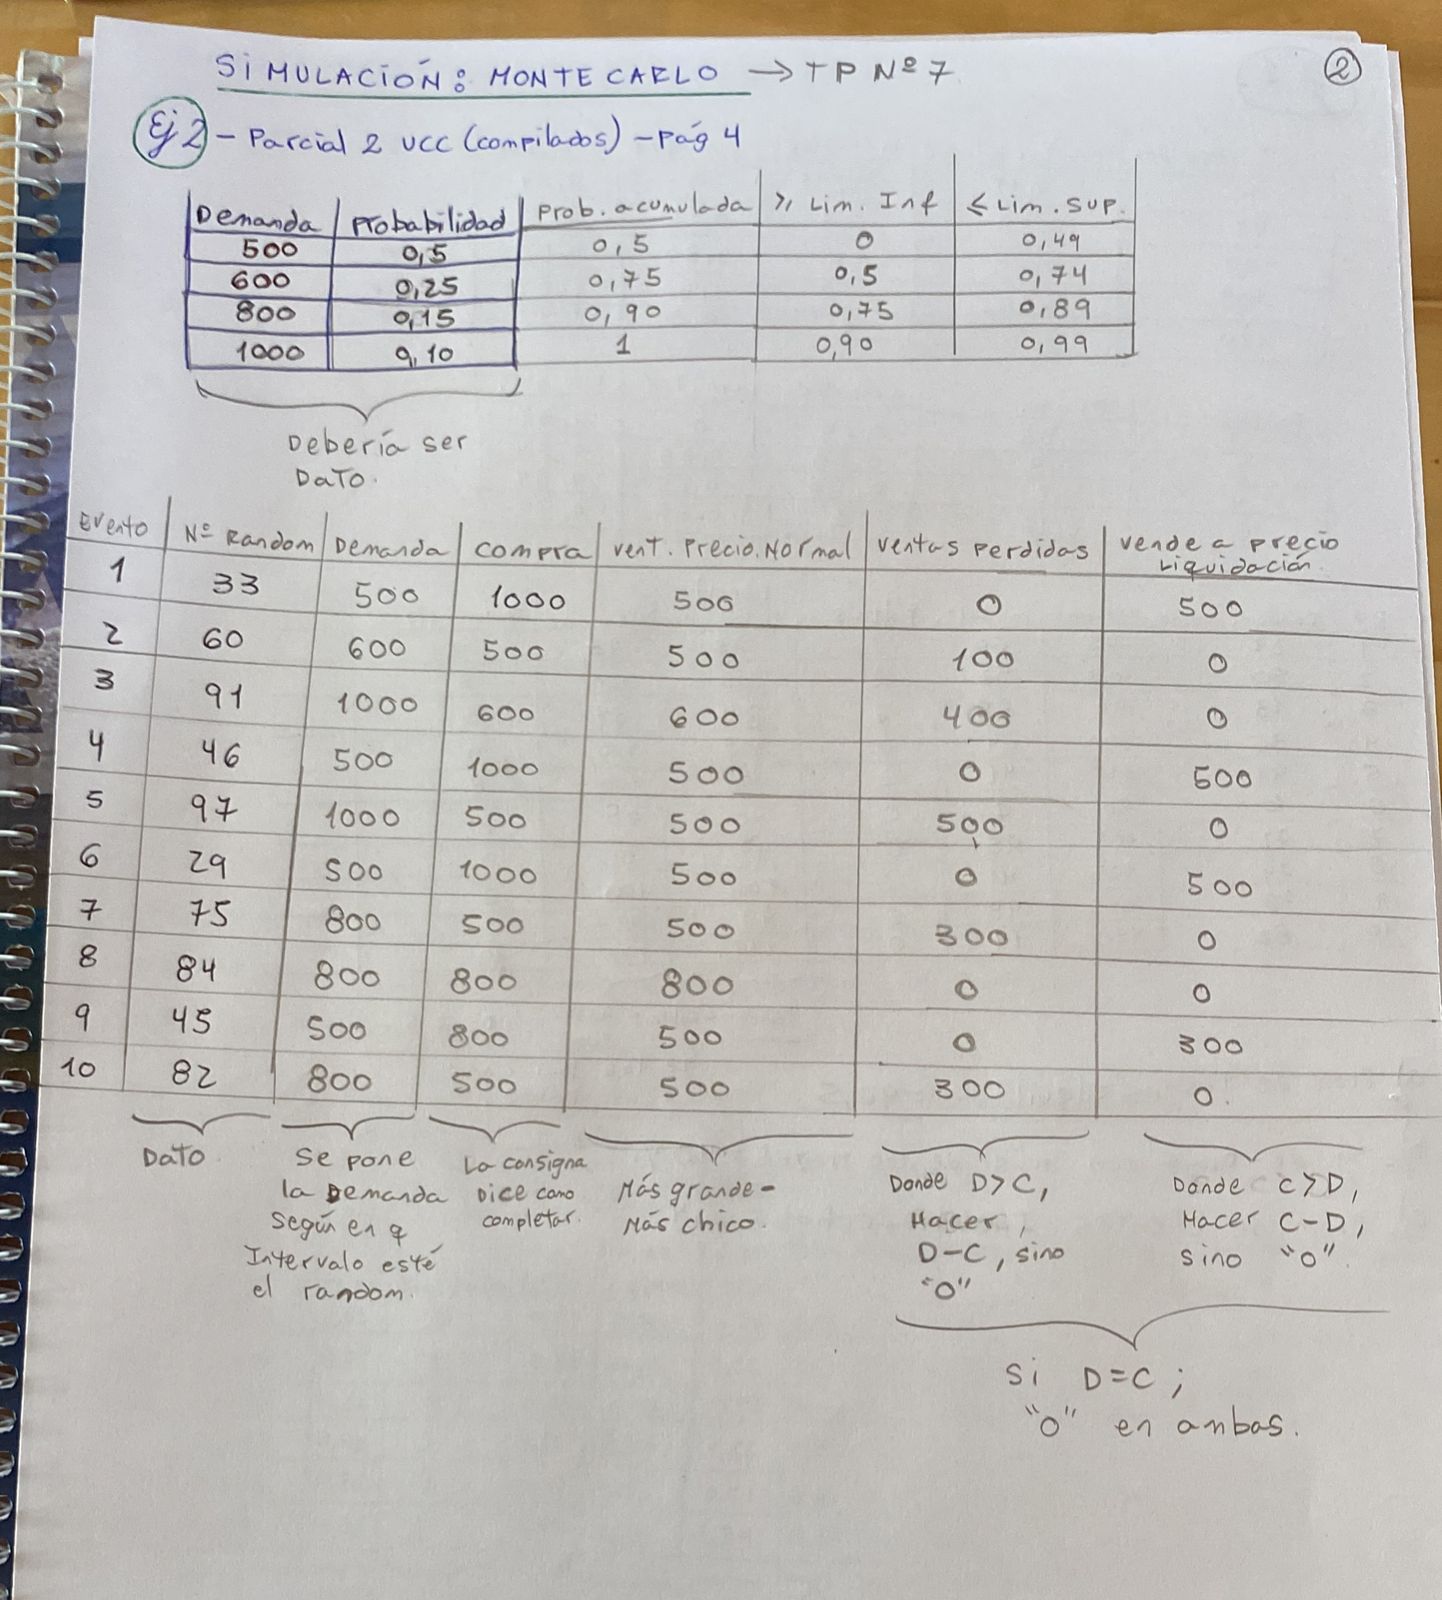 SIMULACIÓN: MONTE CARLO → TP Nº 7
②
Ej 2 - Parcial 2 UCC (compilados) - Pág 4
Demanda | Probabilidad | Prob. acumulada | ≥ Lim. Inf | ≤ Lim. Sup.
500 | 0,5 | 0,5 | 0 | 0,49
600 | 0,25 | 0,75 | 0,5 | 0,74
800 | 0,15 | 0,90 | 0,75 | 0,89
1000 | 0,10 | 1 | 0,90 | 0,99
Debería ser
Dato.
Evento | Nº Random | Demanda | Compra | Vent. Precio. Normal | Ventas perdidas | Vende a precio
Liquidación.
1 | 33 | 500 | 1000 | 500 | 0 | 500
2 | 60 | 600 | 500 | 500 | 100 | 0
3 | 91 | 1000 | 600 | 600 | 400 | 0
4 | 46 | 500 | 1000 | 500 | 0 | 500
5 | 97 | 1000 | 500 | 500 | 500 | 0
6 | 29 | 500 | 1000 | 500 | 0 | 500
7 | 75 | 800 | 500 | 500 | 300 | 0
8 | 84 | 800 | 800 | 800 | 0 | 0
9 | 45 | 500 | 800 | 500 | 0 | 300
10 | 82 | 800 | 500 | 500 | 300 | 0.
Dato.
Se pone
la Demanda
según en q
Intervalo esté
el random.
La consigna
Dice como
completar.
Más grande -
Más chico.
Donde D>C,
Hacer,
D-C, sino
"0"
Donde C>D,
Hacer C-D,
sino "0".
Si D=C;
"0" en ambas.